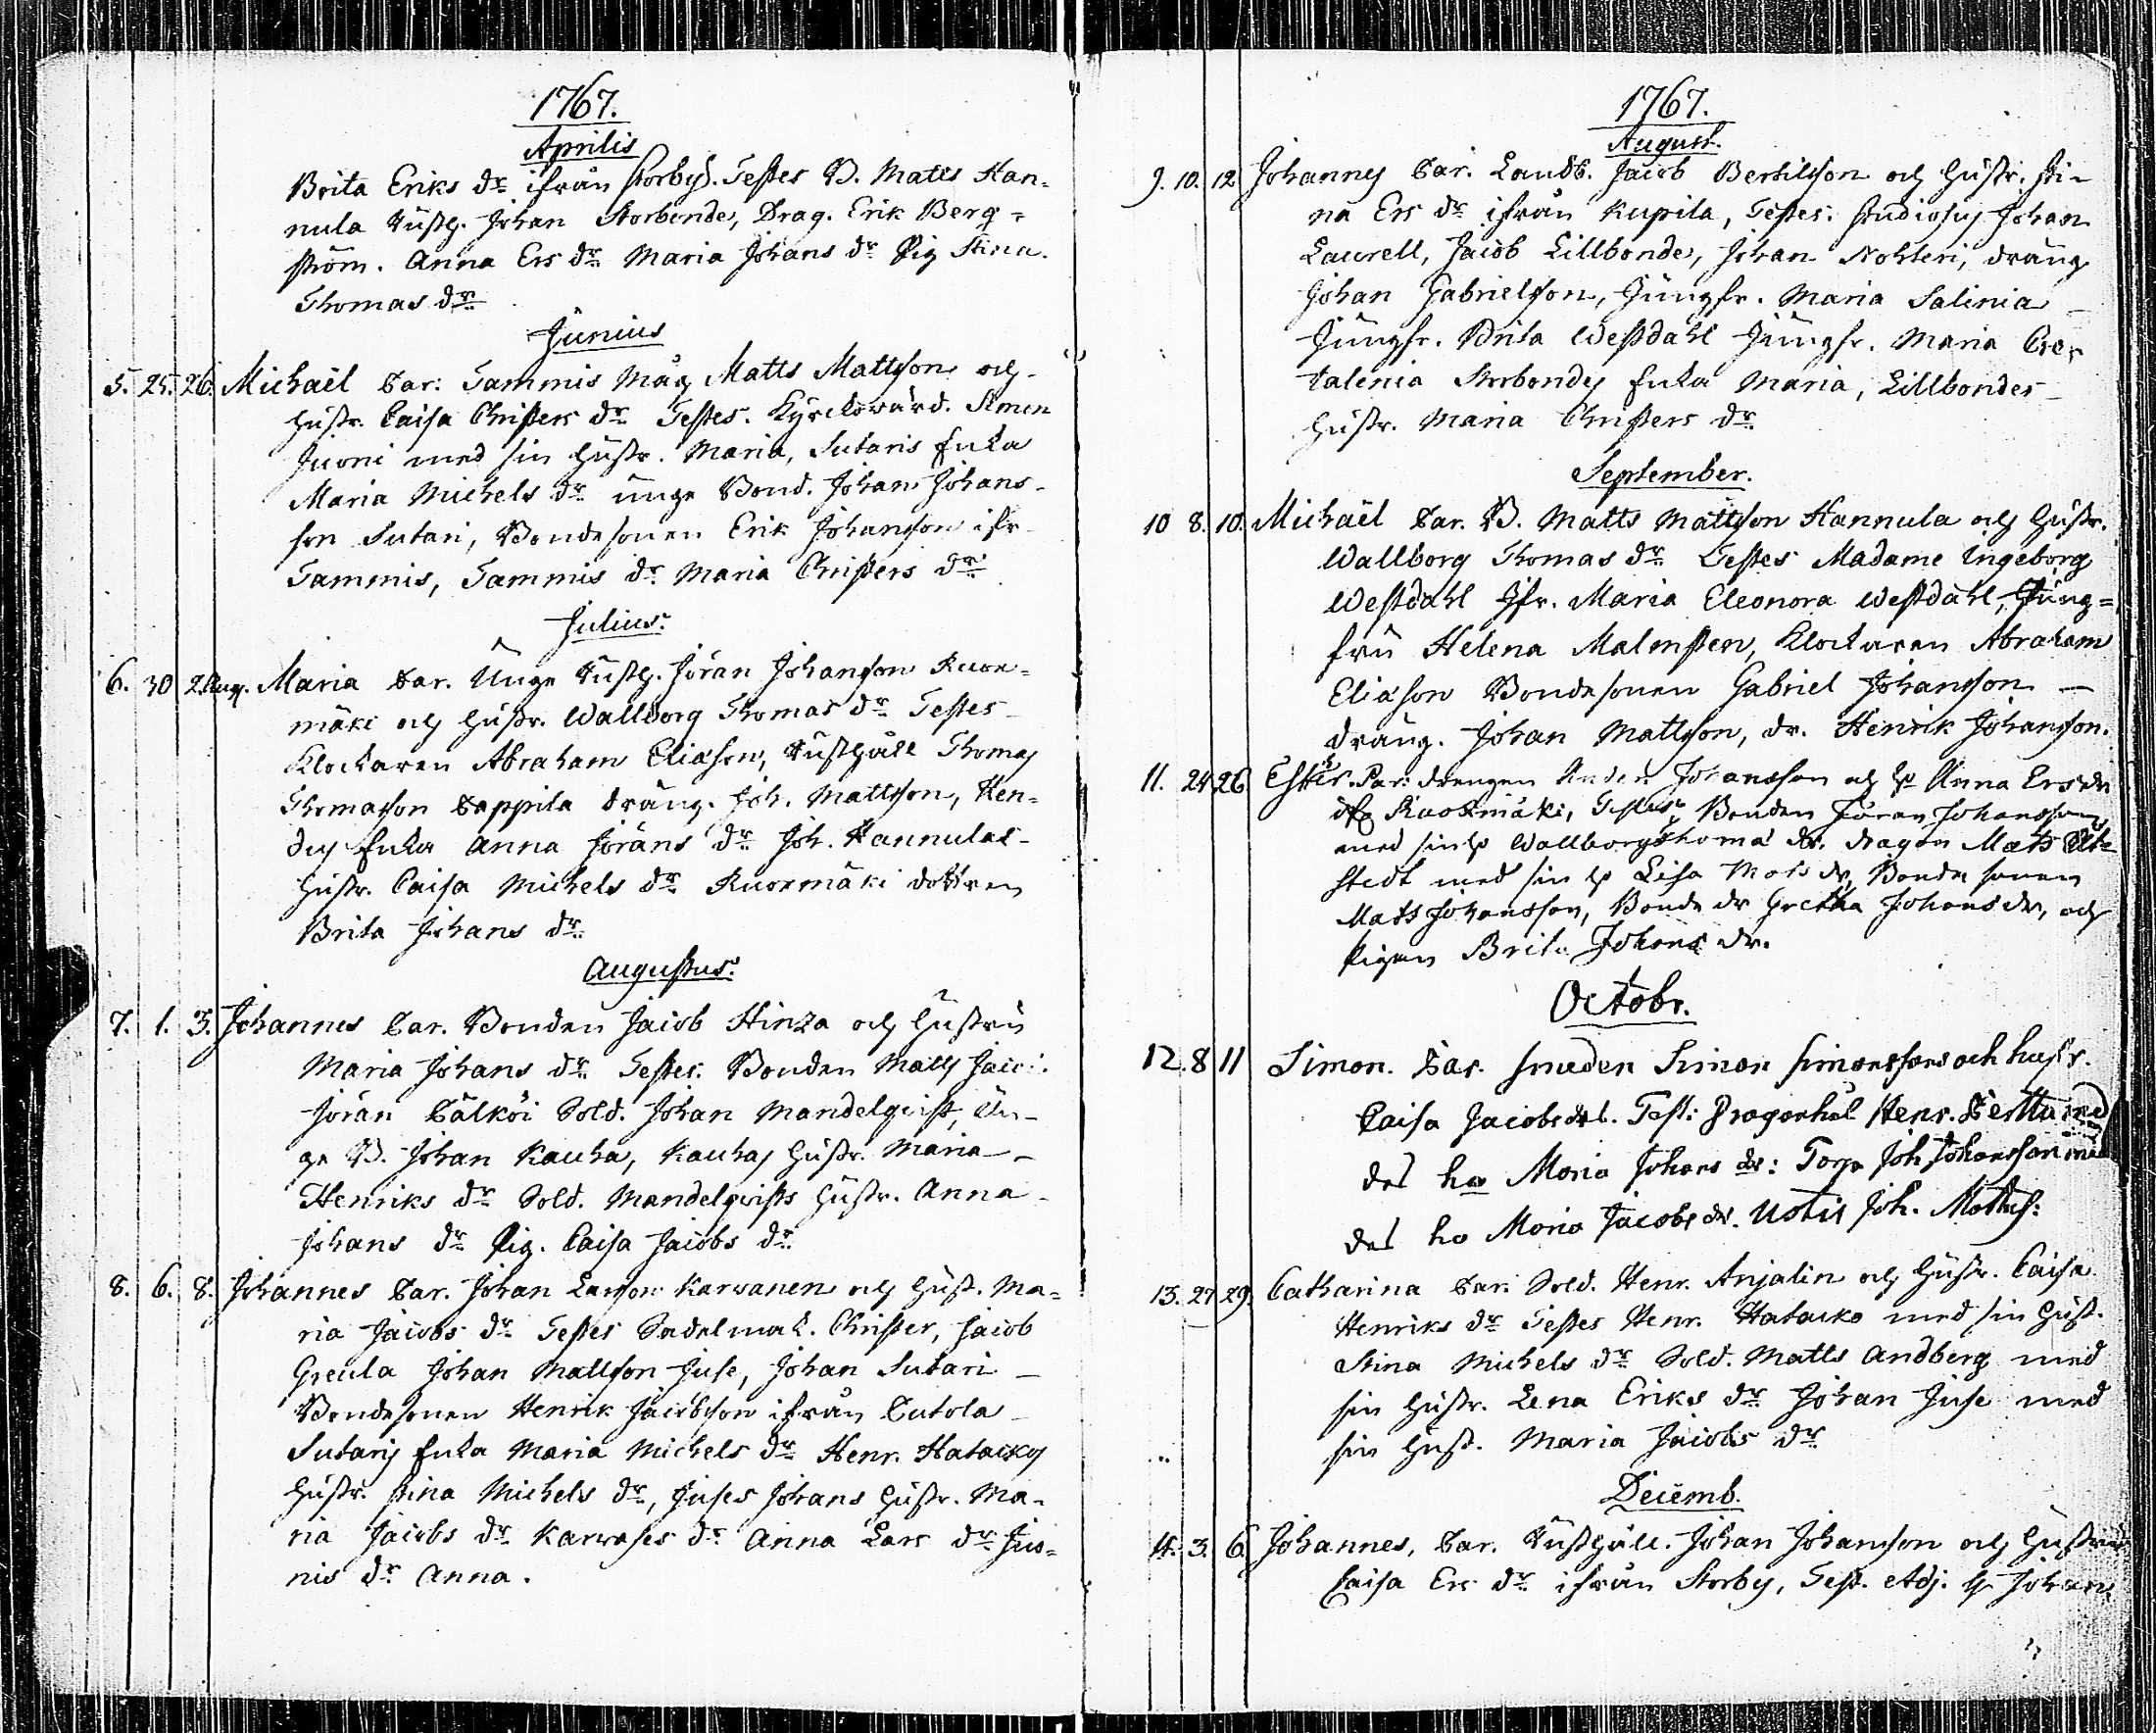 1767.
Aprilis
Brita Eriks dr ifrån Storby. Testes B. Matts Han-
nula Rusth. Johan Storbonde, Drag. Erik Berg=
ström. Anna Ers dr Maria Johans dr Pig Stina
Thomas dr
Junius
5. 25. 26. Michaël Par: Tammis Måg Matts Mattson och
hustr. Caisa Christers dr Testes. Kyrckovärd. Simon
Juoni med sin hustr. Maria, Sutaris Enka
Maria Michels dr unge Bond. Johan Johans-
son Sutari, Bondesonen Erik Johanson ifr
Tammis, Tammis dr Maria Christers dr
Julius.
6. 30 2. Aug. Maria Par. Unge Rusth. Jöran Johanson Ruox-
mäki och hustr. Wallborg Thomas dr Testes
Klockaren Abraham Eliason, Rusthåll Thomas
Thomasson Pappila dräng. Joh. Mattson, Hen-
des Enka Anna Jörans dr Joh. Hannulas
hustr. Caisa Michels dr Ruoxmäki dottren
Brita Johans dr
Augustus.
7. 1. 3. Johannes Par. Bonden Jacob Hinza och hustru
Maria Johans dr Testes. Bonden Matts
Jöran Pälköi Sold. Johan Mandelqvist, Un-
ge B. Johan Kauha, Kauhas hustr. Maria
Henriks dr Sold. Mandelqvists hustr. Anna
Johans dr Pig. Caisa Jacobs dr
8. 6. 8. Johannes Par. Johan Larson Karvanen och hust. Ma-
ria Jacobs dr Testes Sadelmak. Christer, Jacob
Greula Johan Mattson Juse, Johan Sutari
Bondesonen Henrik Jacobson ifrån Putola
Sutaris Enka Maria Michels dr Henr. Hatackas
hustr. Stina Michels dr, Juses Johans hustr. Ma-
ria Jacobs dr dr Anna Lars dr Juo-
nis dr Anna.
1767.
August.
9. 10. 12 Johannes Par. Landb. Jacob Bertilson och hustr. Sti-
na Ers dr ifrån Kupila, Testes. Studiosus Johan
Laurell, Jacob Lillbonde, Johan Nohteri, dräng
Johan Gabrielson, Jungfr. Maria Salinia
Jungfr. Brita Westdahl Jungfr. Maria
Storbondes Enka Maria, Lillbondes
hustr. Maria Christers dr
September.
10 8. 10. Michaël Par. B. Matts Mattson Hannula och hustr.
Wallborg Thomas dr Testes Madame Ingeborg
Westdahl Jfr. Maria Eleonora Westdahl, Jung=
fru Helena Malmsten, Klockaren Abraham
Eliason Bondesonen Gabriel Johansson
dräng. Johan Mattson, dr. Henrik Johanson.
11. 24 26 Ester. Par: drengen Anders Johansson och h Anna Ers dr
Ruoxmäki, Testes, Bonden Jöran Johansson
med sin h Wallborg Thoma dr. dragon Mats
stedt med sin h Lisa Mats dr, Bonde sonen
Mats Johansson, Bonde dr Gretha Johans dr, och
Pigan Brita Johans dr.
Octobr.
12. 8 11 Simon. Par. smeden Simon Simonsson och hustr.
Caisa Jacobs dr. Test: Henr. Perttu med
des h Maria Johans dr: Torp Joh Johansson med
des h Maria Jacobs dr. Ustis Joh. Matths:
13. 27 29. Catharina Par. Sold. Henr. Anjalin och hustr. Caisa
Henriks dr Testes Henr. Hatacko med sin hust.
Stina Michels dr Sold. Matts Andberg med
sin hustr. Lena Eriks dr Johan Juse med
sin hust. Maria Jacobs dr
Decemb.
14. 3. 6. Johannes, Par. Rusthåll. Johan Johanson och hustru
Caisa Ers dr ifrån Storby, Test. Adj. H Johan